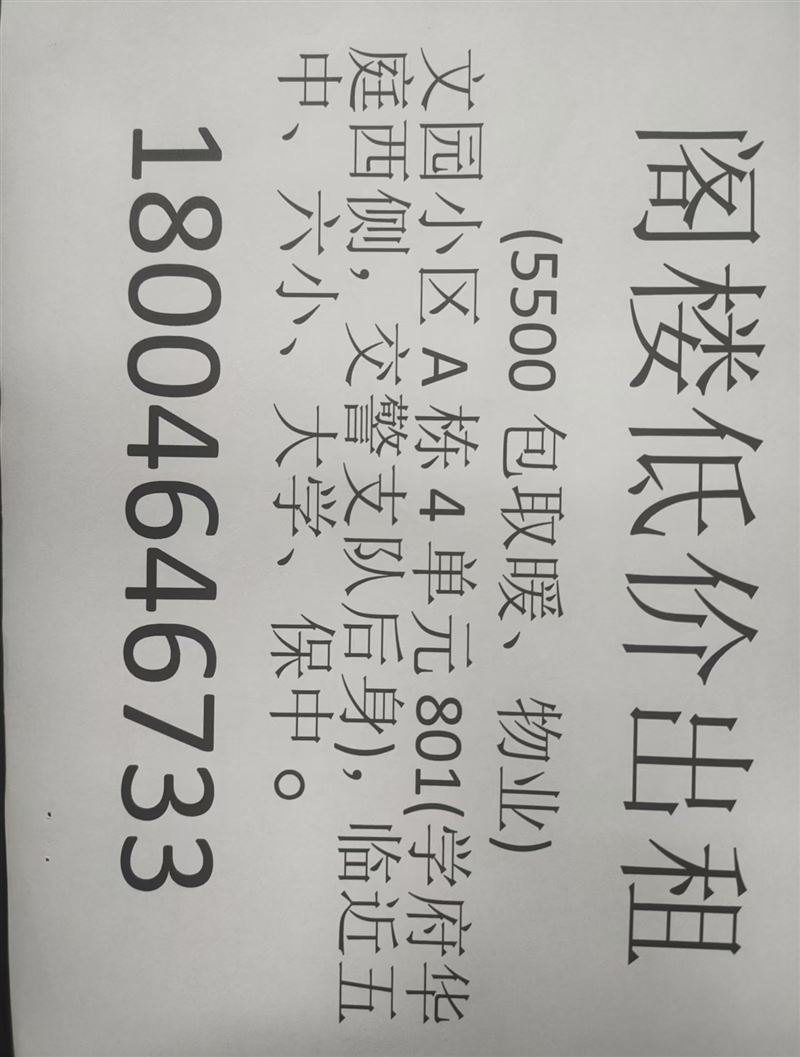 阁楼低价出租
(5500 包取暖、物业)
文园小区 A 栋 4 单元 801(学府华
庭西侧，交警支队后身)，临近五
中、六小、大学、保中。
18004646733